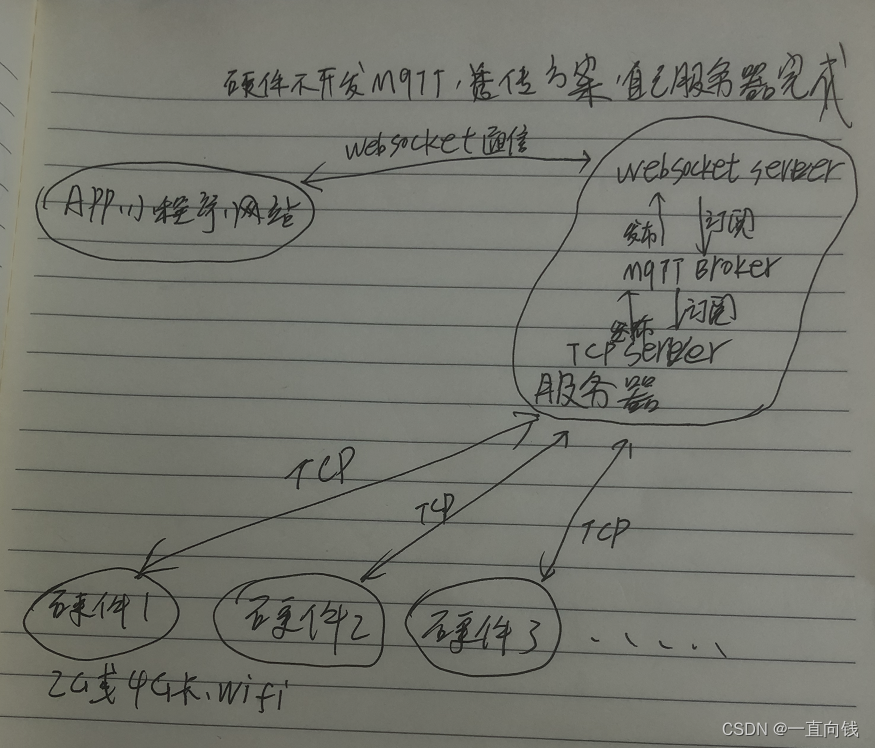 硬件不开发MQTT,透传方案,自己服务器完成
websocket通信
APP,小程序,网站
websocket server
发布 订阅
MQTT Broker
发布 订阅
TCP server
服务器
TCP
TCP
TCP
硬件1
硬件2
硬件3 ......
2G或4G卡、wifi
CSDN @一直向钱